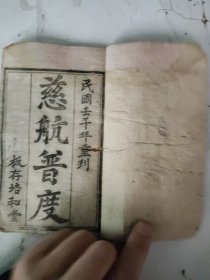 民國壬子年重刊
慈航普度
板存培和堂